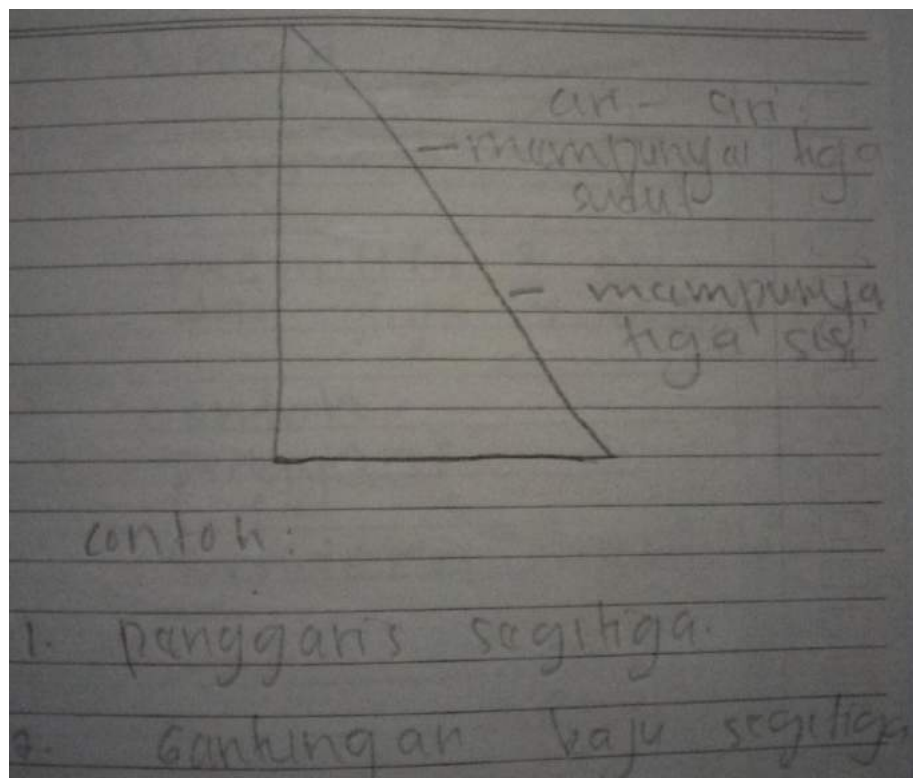 ciri - ciri :
- mempunyai tiga
sudut
- mempunya
tiga sisi
contoh :
1. penggaris segitiga.
2. Gantungan baju segitiga